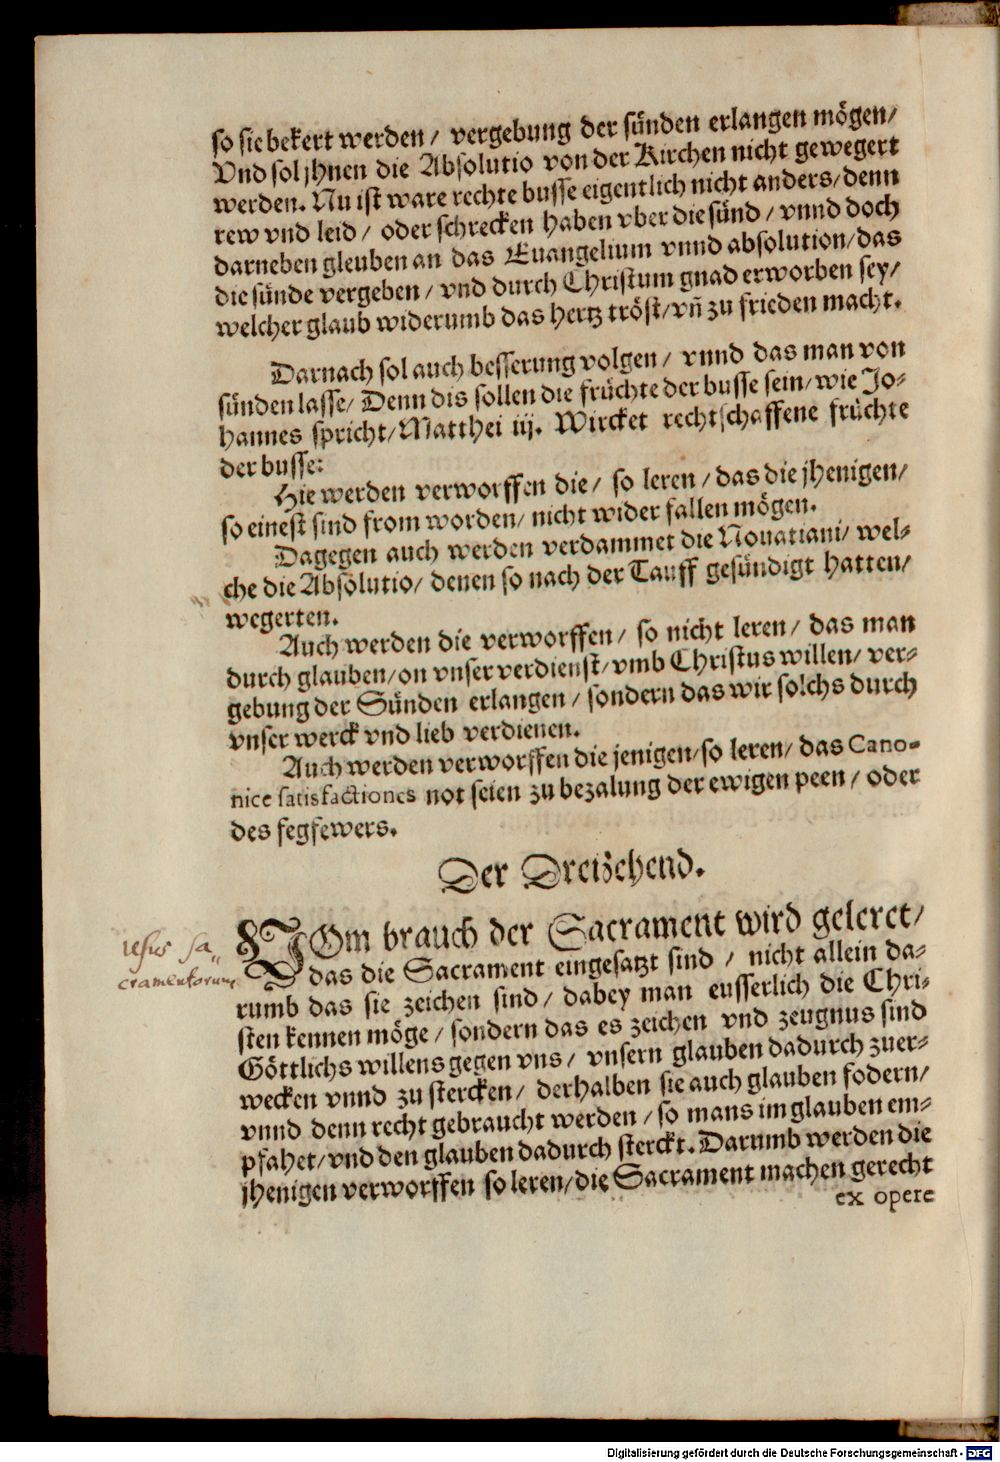 so sie bekert werden / vergebung der sünden erlangen mögen/
Vnd sol jhnen die Absolutio von der Kirchen nicht gewegert
werden. Nu ist ware rechte busse eigentlich nicht anders/denn
rew vnd leid / oder schrecken haben vber die sünd / vnnd doch
darneben gleuben an das Euangelium vnnd absolution/das
die sünde vergeben / vnd durch Christum gnad erworben sey/
welcher glaub widerumb das hertz tröst/vn̄ zu frieden macht.
Darnach sol auch besserung volgen / vnnd das man von
sünden lasse/ Denn dis sollen die früchte der busse sein/wie Jo-
hannes spricht/Matthei iij. Wircket rechtschaffene früchte
der busse:
Hie werden verworffen die / so leren / das die jhenigen/
so einest sind from worden/ nicht wider fallen mögen.
Dagegen auch werden verdammet die Nouatiani/ wel-
che die Absolutio/ denen so nach der Tauff gesündigt hatten/
wegerten.
Auch werden die verworffen / so nicht leren / das man
durch glauben/on vnser verdienst/vmb Christus willen/ ver-
gebung der Sünden erlangen / sondern das wir solchs durch
vnser werck vnd lieb verdienen.
Auch werden verworffen die jenigen/so leren/ das Cano-
nice satisfactiones not seien zu bezalung der ewigen peen / oder
des fegfewers.
Der Dreizehend.
VOm brauch der Sacrament wird geleret/
das die Sacrament eingesatzt sind / nicht allein da-
rumb das sie zeichen sind/ dabey man eusserlich die Chri-
sten kennen möge / sondern das es zeichen vnd zeugnus sind
Göttlichs willens gegen vns / vnsern glauben dadurch zuer-
wecken vnnd zu stercken / derhalben sie auch glauben fodern/
vnnd denn recht gebraucht werden / so mans im glauben em-
pfahet/vnd den glauben dadurch sterckt. Darumb werden die
jhenigen verworffen so leren/die Sacrament machen gerecht
ex opere
usus sa-
cramentorum
Digitalisierung gefördert durch die Deutsche Forschungsgemeinschaft - DFG